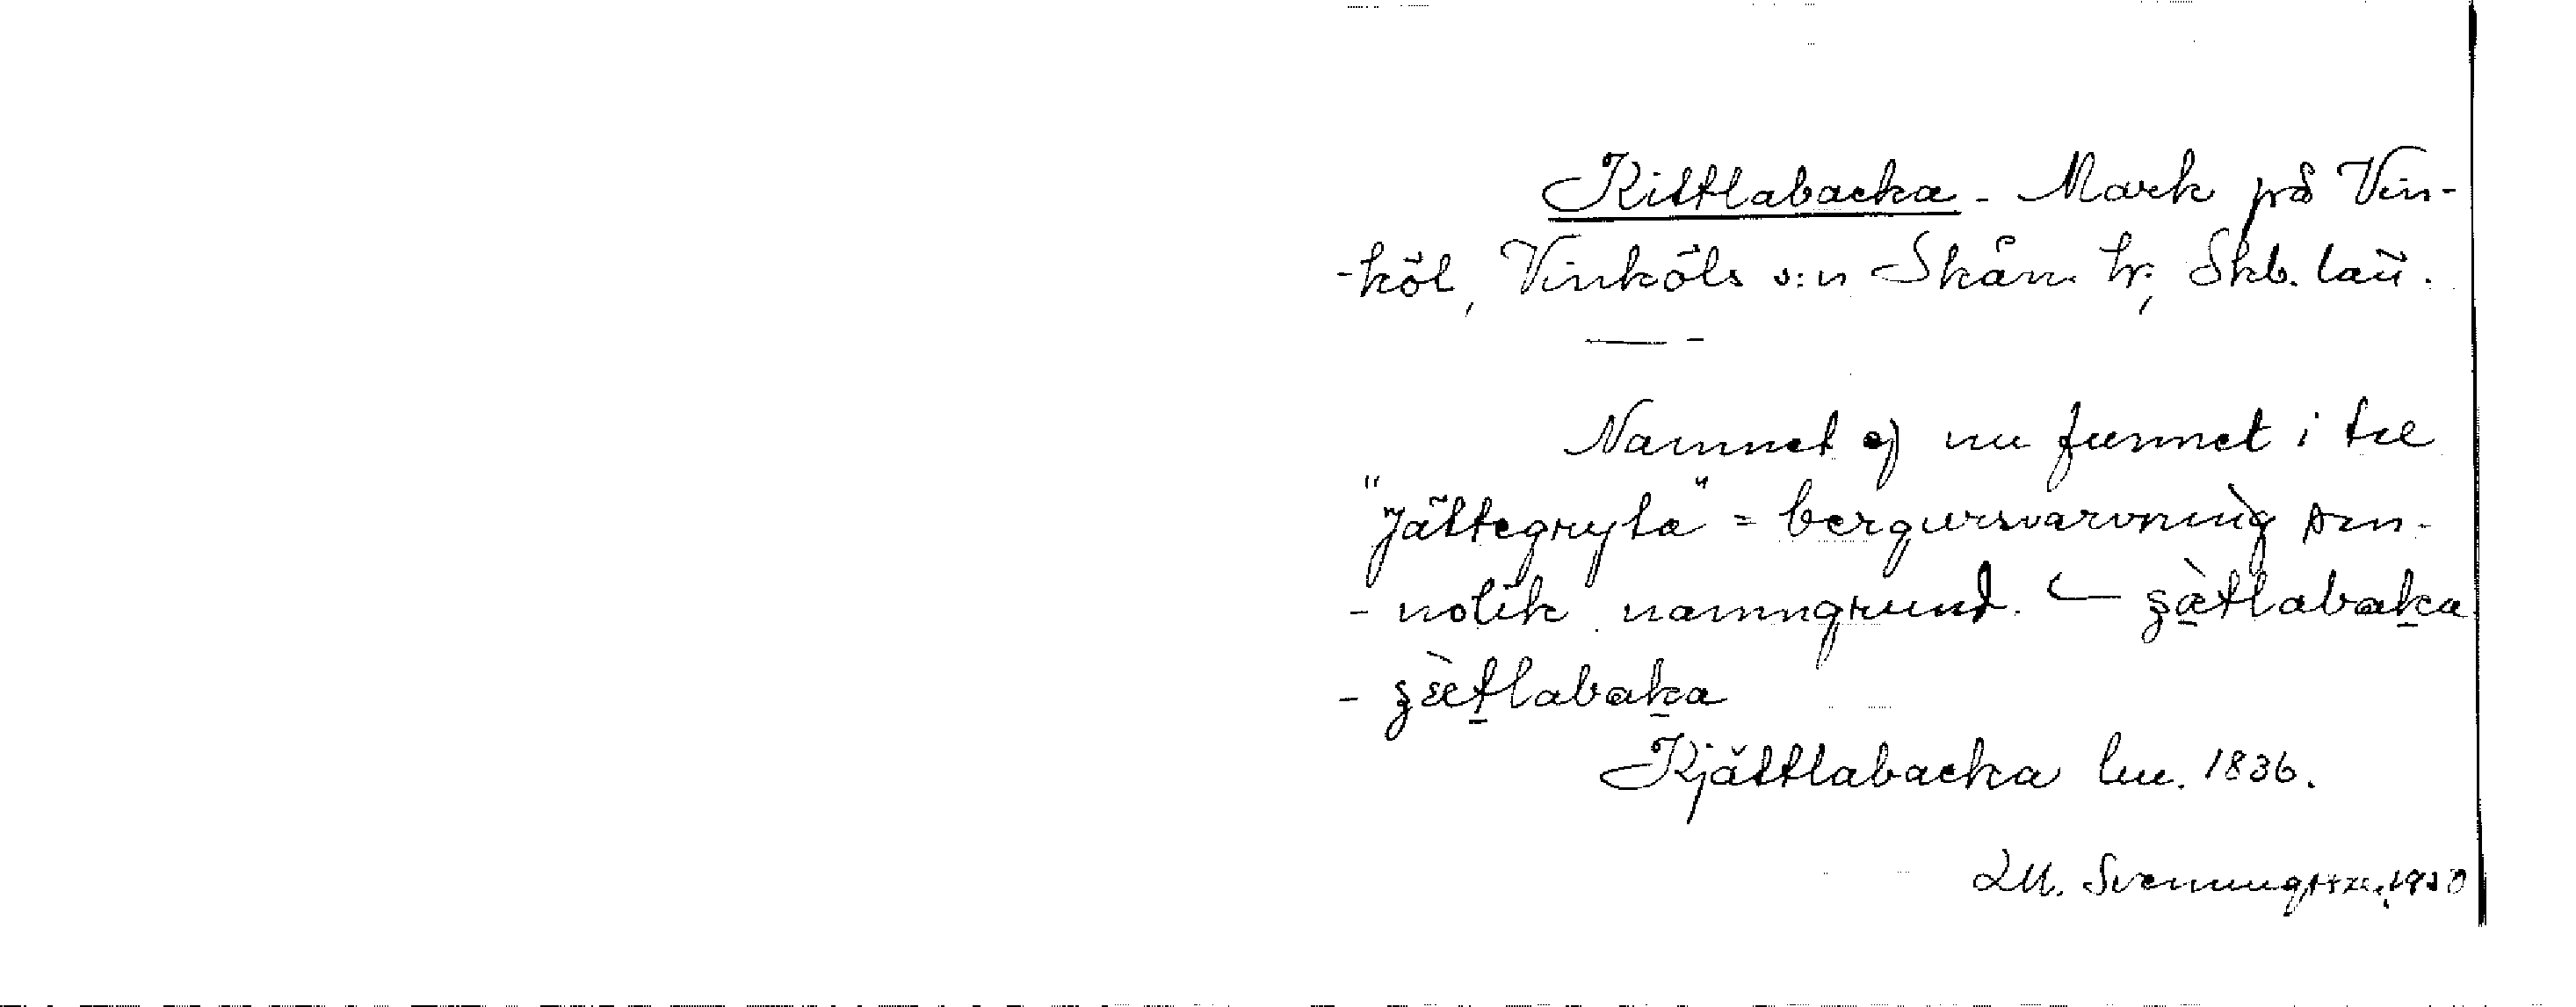 Kittlabacka - Mark på Vin-
-köl, Vinköls s:n Skån. hr, Skb. län.
Namnet ej nu funnet i
"Jättegryta" = bergursvarvning san-
- nolik namngrund. – ʂætlabaka
- ʂætlabaka
Kjättlabacka lm. 1836.
Svenungsson,